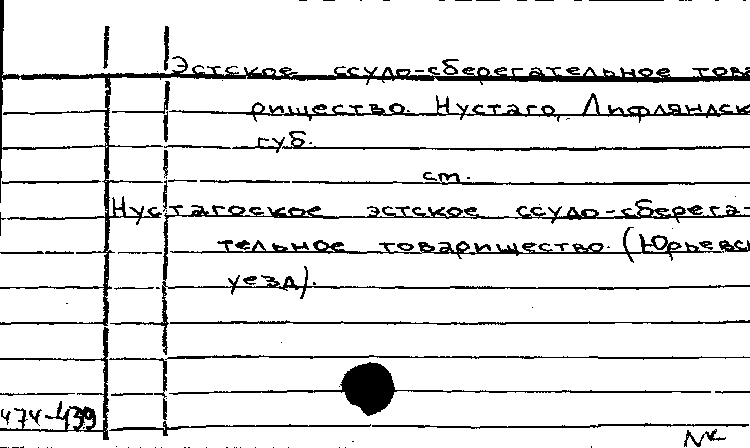 Эстское ссудо-сберегательное това
рищество. Нустаго, Лифляндск
губ.
ст.
Нустагоское эстское ссудо-сберега-
тельное товарищество. (Юрьевск
уезд).
474-439